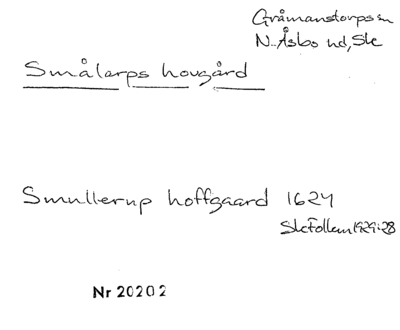 Gråmanstorps sn
N. Åsbo hd, Ske
Smålarps hovgård
Smullerup hoffgaard 1624
SkFollem 1929:28
Nr 20202